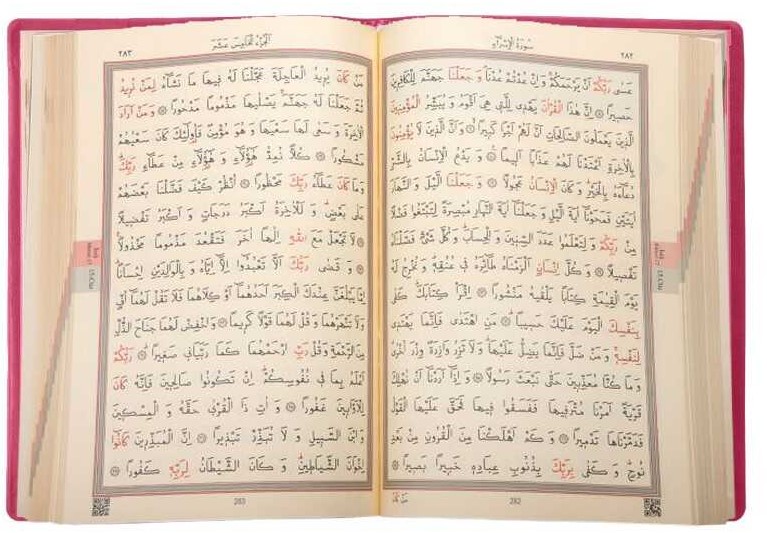 سورة الإسراء
٢٨٢
عَسٰى رَبُّكُمْ اَنْ يَرْحَمَكُمْ وَاِنْ عُدْتُمْ عُدْنَا وَجَعَلْنَا جَهَنَّمَ لِلْكَافِرِينَ
حَصِيرًا اِنَّ هٰذَا الْقُرْاٰنَ يَهْدِى لِلَّتِى هِىَ اَقْوَمُ وَيُبَشِّرُ الْمُؤْمِنِينَ
الَّذِينَ يَعْمَلُونَ الصَّالِحَاتِ اَنَّ لَهُمْ اَجْرًا كَبِيرًا وَاَنَّ الَّذِينَ لَا يُؤْمِنُونَ
بِالْاٰخِرَةِ اَعْتَدْنَا لَهُمْ عَذَابًا اَلِيمًا وَيَدْعُ الْاِنْسَانُ بِالشَّرِّ
دُعَاءَهُ بِالْخَيْرِ وَكَانَ الْاِنْسَانُ عَجُولًا وَجَعَلْنَا الَّيْلَ وَالنَّهَارَ
اٰيَتَيْنِ فَمَحَوْنَا اٰيَةَ الَّيْلِ وَجَعَلْنَا اٰيَةَ النَّهَارِ مُبْصِرَةً لِتَبْتَغُوا فَضْلًا
مِنْ رَبِّكُمْ وَلِتَعْلَمُوا عَدَدَ السِّنِينَ وَالْحِسَابَ وَكُلَّ شَىْءٍ فَصَّلْنَاهُ
تَفْصِيلًا وَكُلَّ اِنْسَانٍ اَلْزَمْنَاهُ طَائِرَهُ فِى عُنُقِهِ وَنُخْرِجُ لَهُ
يَوْمَ الْقِيٰمَةِ كِتَابًا يَلْقٰيهُ مَنْشُورًا اِقْرَأْ كِتَابَكَ كَفٰى
بِنَفْسِكَ الْيَوْمَ عَلَيْكَ حَسِيبًا مَنِ اهْتَدٰى فَاِنَّمَا يَهْتَدِى
لِنَفْسِهِ وَمَنْ ضَلَّ فَاِنَّمَا يَضِلُّ عَلَيْهَا وَلَا تَزِرُ وَازِرَةٌ وِزْرَ اُخْرٰى
وَمَا كُنَّا مُعَذِّبِينَ حَتّٰى نَبْعَثَ رَسُولًا وَاِذَا اَرَدْنَا اَنْ نُهْلِكَ
قَرْيَةً اَمَرْنَا مُتْرَفِيهَا فَفَسَقُوا فِيهَا فَحَقَّ عَلَيْهَا الْقَوْلُ
فَدَمَّرْنَاهَا تَدْمِيرًا وَكَمْ اَهْلَكْنَا مِنَ الْقُرُونِ مِنْ بَعْدِ
نُوحٍ وَكَفٰى بِرَبِّكَ بِذُنُوبِ عِبَادِهِ خَبِيرًا بَصِيرًا
مَنْ كَانَ
282
الجزء الخامس عشر
٢٨٣
مَنْ كَانَ يُرِيدُ الْعَاجِلَةَ عَجَّلْنَا لَهُ فِيهَا مَا نَشَاءُ لِمَنْ نُرِيدُ
ثُمَّ جَعَلْنَا لَهُ جَهَنَّمَ يَصْلٰيهَا مَذْمُومًا مَدْحُورًا وَمَنْ اَرَادَ
الْاٰخِرَةَ وَسَعٰى لَهَا سَعْيَهَا وَهُوَ مُؤْمِنٌ فَاُولٰئِكَ كَانَ سَعْيُهُمْ
مَشْكُورًا كُلًّا نُمِدُّ هٰؤُلَاءِ وَهٰؤُلَاءِ مِنْ عَطَاءِ رَبِّكَ
وَمَا كَانَ عَطَاءُ رَبِّكَ مَحْظُورًا اُنْظُرْ كَيْفَ فَضَّلْنَا بَعْضَهُمْ
عَلٰى بَعْضٍ وَلَلْاٰخِرَةُ اَكْبَرُ دَرَجَاتٍ وَاَكْبَرُ تَفْضِيلًا
لَا تَجْعَلْ مَعَ اللّٰهِ اِلٰهًا اٰخَرَ فَتَقْعُدَ مَذْمُومًا مَخْذُولًا
وَقَضٰى رَبُّكَ اَلَّا تَعْبُدُوا اِلَّا اِيَّاهُ وَبِالْوَالِدَيْنِ اِحْسَانًا
اِمَّا يَبْلُغَنَّ عِنْدَكَ الْكِبَرَ اَحَدُهُمَا اَوْ كِلَاهُمَا فَلَا تَقُلْ لَهُمَا اُفٍّ
وَلَا تَنْهَرْهُمَا وَقُلْ لَهُمَا قَوْلًا كَرِيمًا وَاخْفِضْ لَهُمَا جَنَاحَ الذُّلِّ
مِنَ الرَّحْمَةِ وَقُلْ رَبِّ ارْحَمْهُمَا كَمَا رَبَّيَانِى صَغِيرًا رَبُّكُمْ
اَعْلَمُ بِمَا فِى نُفُوسِكُمْ اِنْ تَكُونُوا صَالِحِينَ فَاِنَّهُ كَانَ
لِلْاَوَّابِينَ غَفُورًا وَاٰتِ ذَا الْقُرْبٰى حَقَّهُ وَالْمِسْكِينَ
وَابْنَ السَّبِيلِ وَلَا تُبَذِّرْ تَبْذِيرًا اِنَّ الْمُبَذِّرِينَ كَانُوا
اِخْوَانَ الشَّيَاطِينِ وَكَانَ الشَّيْطَانُ لِرَبِّهِ كَفُورًا
283